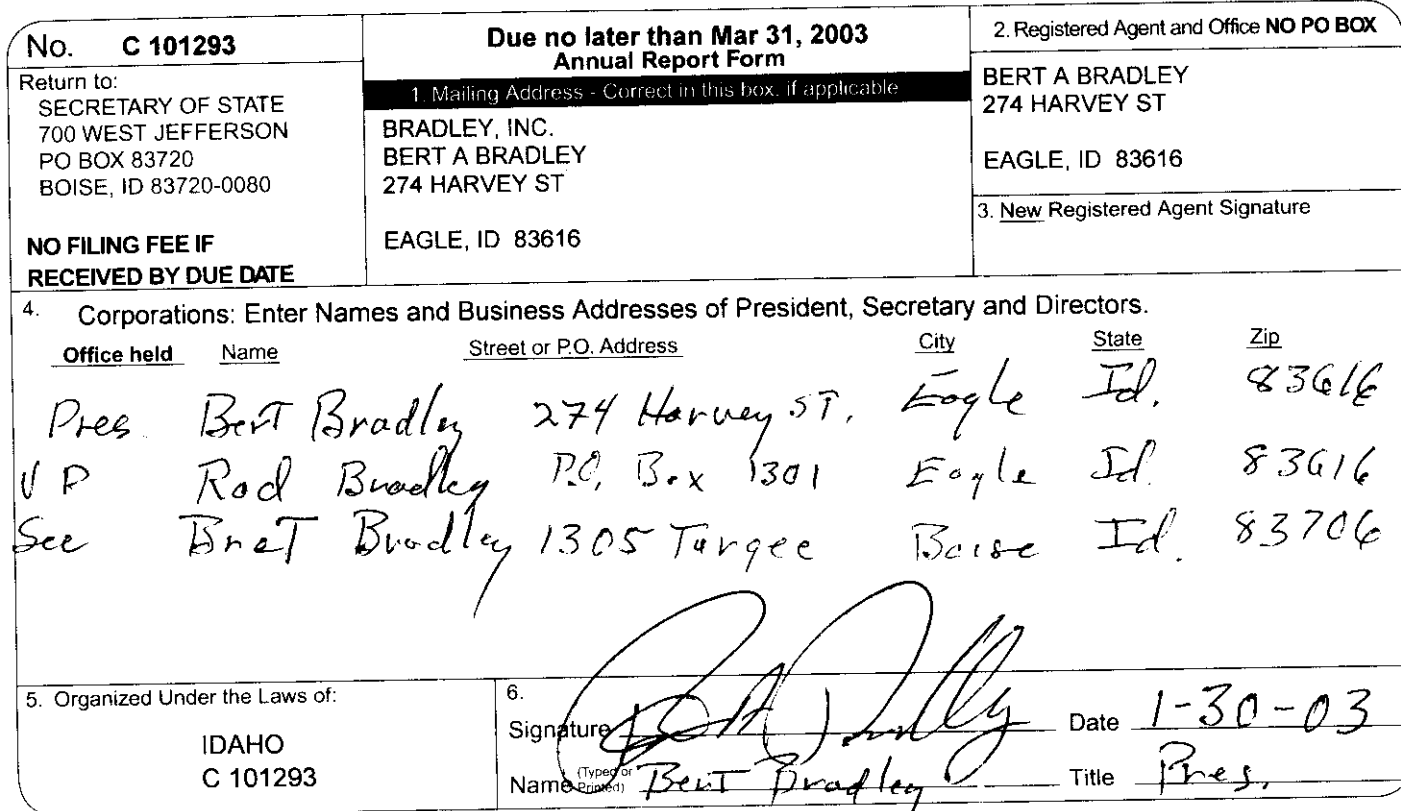 No. C 101293
Return to:
SECRETARY OF STATE
700 WEST JEFFERSON
PO BOX 83720
BOISE, ID 83720-0080
NO FILING FEE IF
RECEIVED BY DUE DATE
Due no later than Mar 31, 2003
Annual Report Form
1. Mailing Address - Correct in this box, if applicable
BRADLEY, INC.
BERT A BRADLEY
274 HARVEY ST
EAGLE, ID 83616
2. Registered Agent and Office NO PO BOX
BERT A BRADLEY
274 HARVEY ST
EAGLE, ID 83616
3. New Registered Agent Signature
4. Corporations: Enter Names and Business Addresses of President, Secretary and Directors.
Office held Name Street or P.O. Address City State Zip
Pres. Bert Bradley 274 Harvey ST. Eagle Id. 83616
VP Rod Bradley P.O. Box 1301 Eagle Id. 83616
Sec Bret Bradley 1305 Targee Boise Id. 83706
5. Organized Under the Laws of:
IDAHO
C 101293
6.
Signature Date 1-30-03
Name (Typed or Printed) Bert Bradley Title Pres.